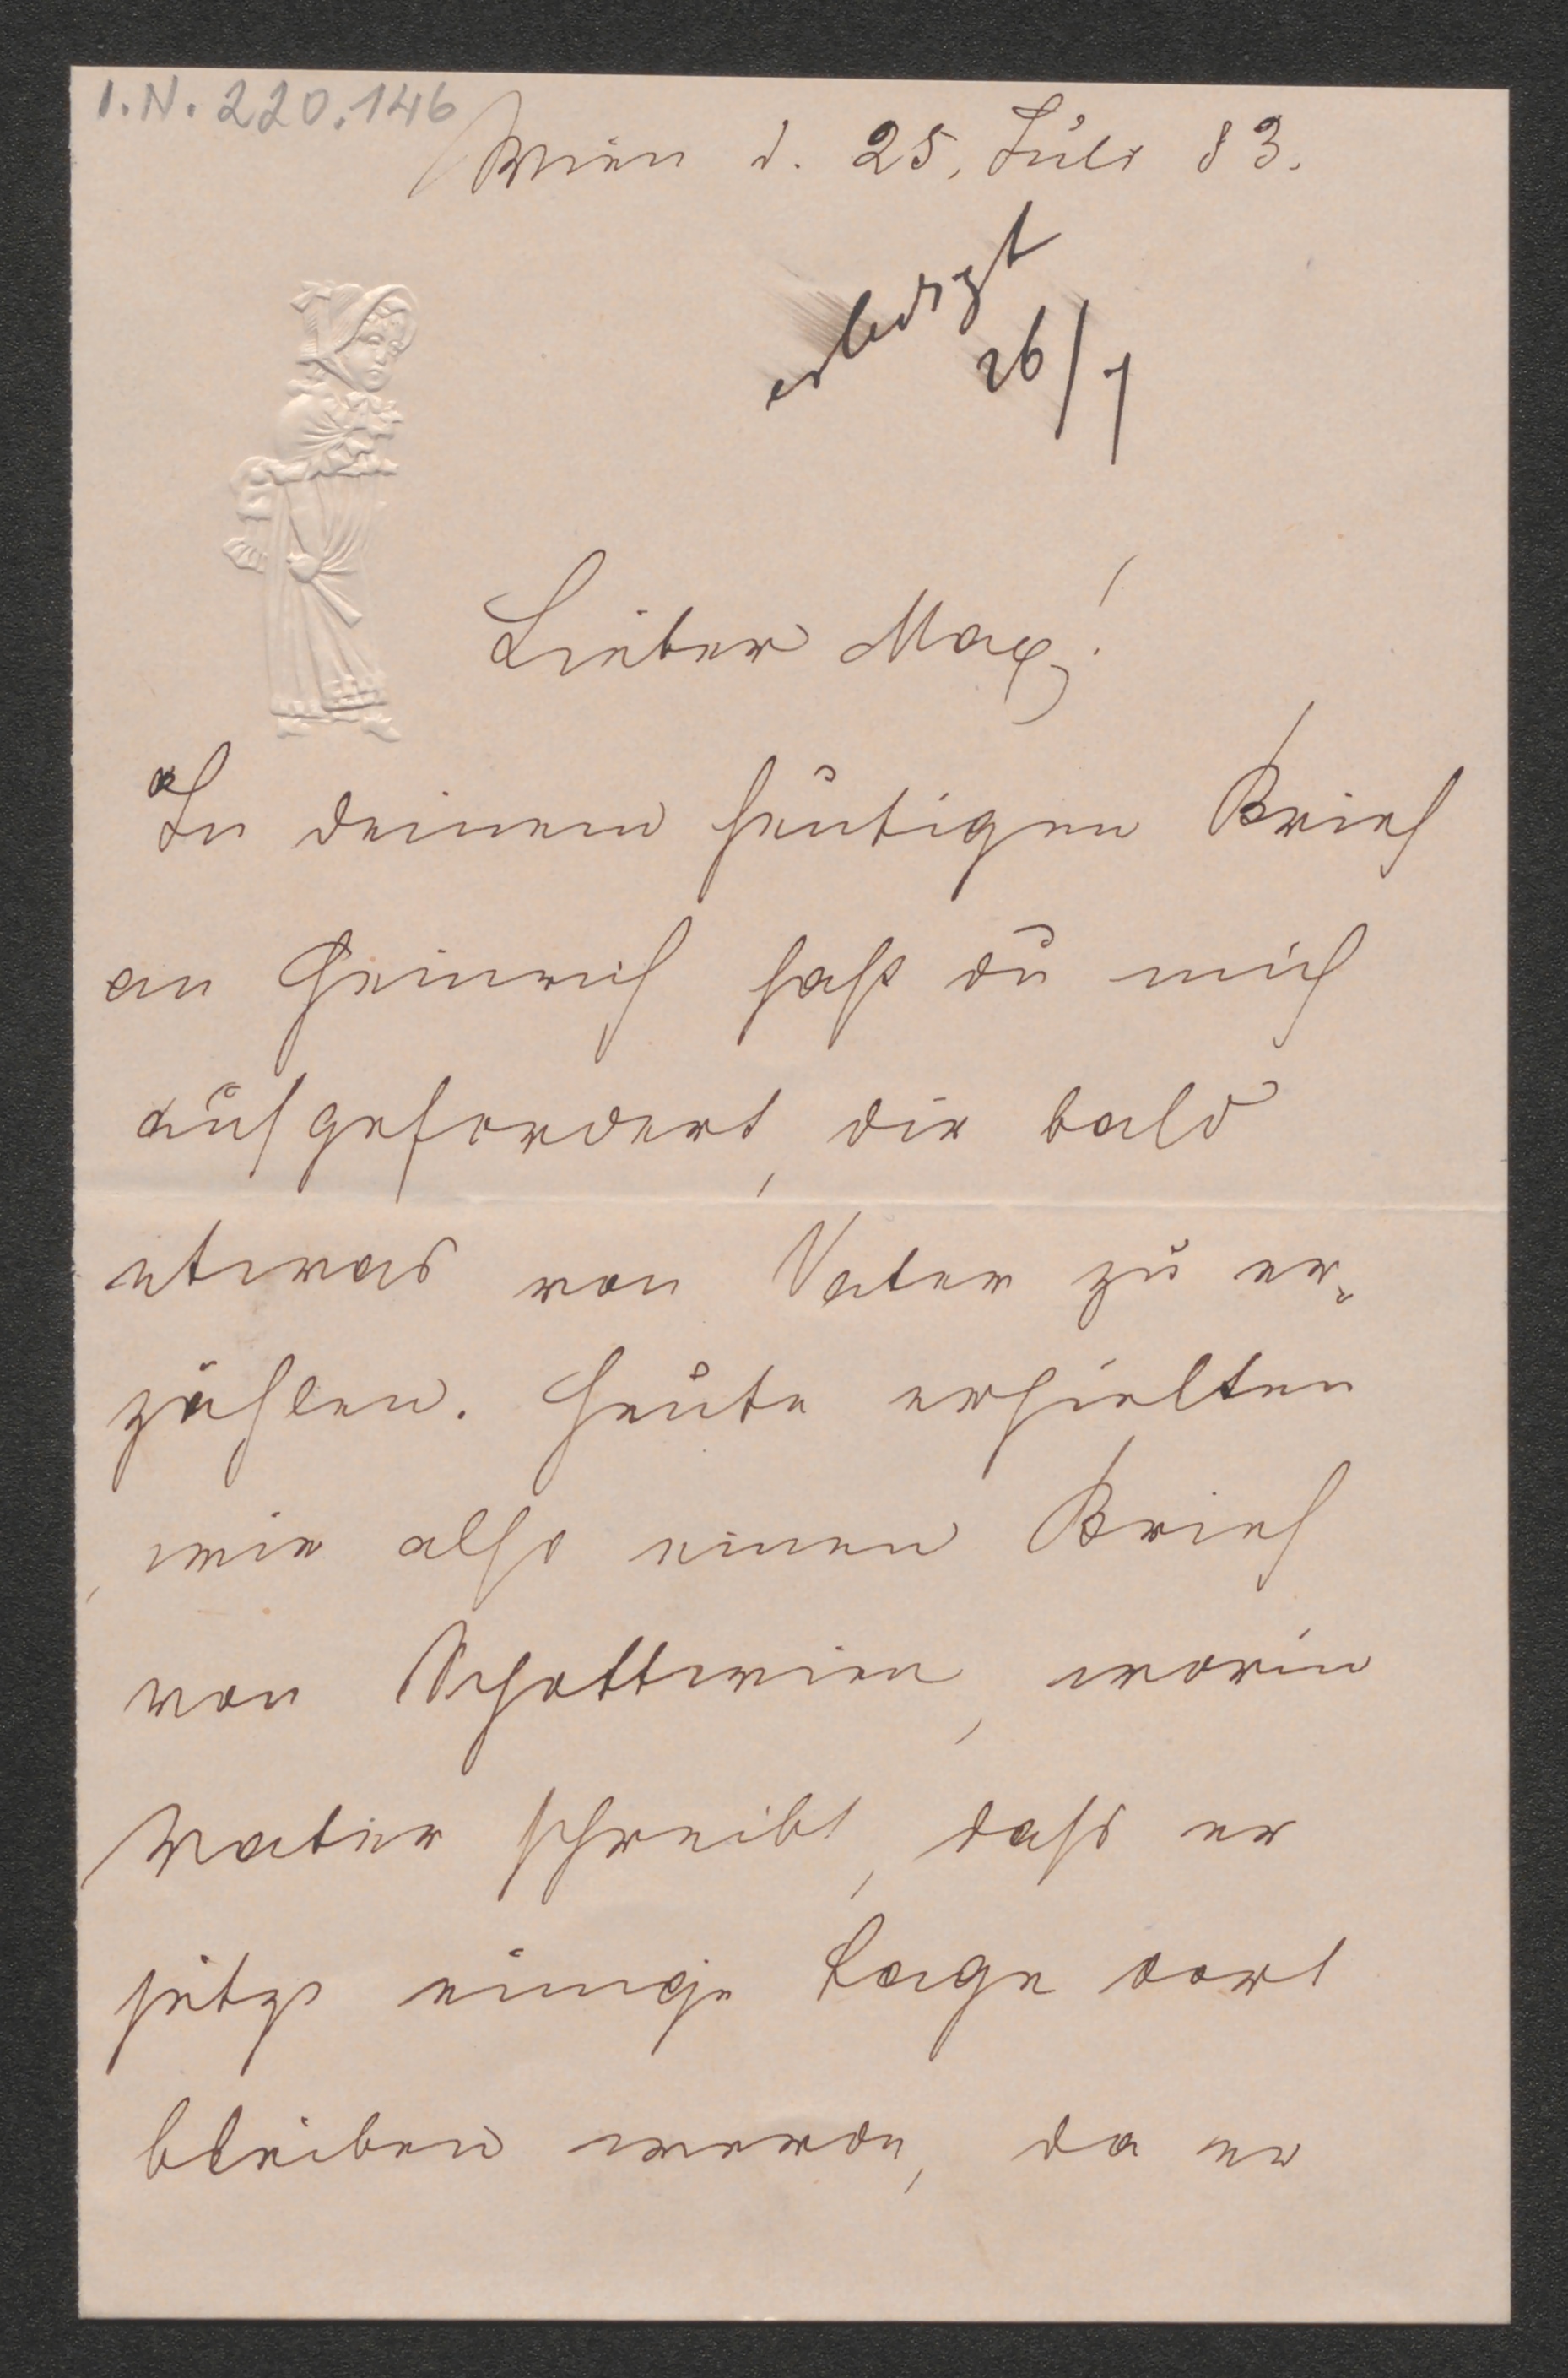 I.N. 220.146
Wien d. 25. Juli 83.
erledigt
26/7
Lieber Max!
In deinem heutigen Brief
an Heinrich hast du mich
aufgefordert, dir bald
etwas von Vater zu er-
zählen. Heute erhielten
wir also einen Brief
von Schottwien, worin
Vater schreibt, dass er
jetzt einige Tage dort
bleiben werde, da er